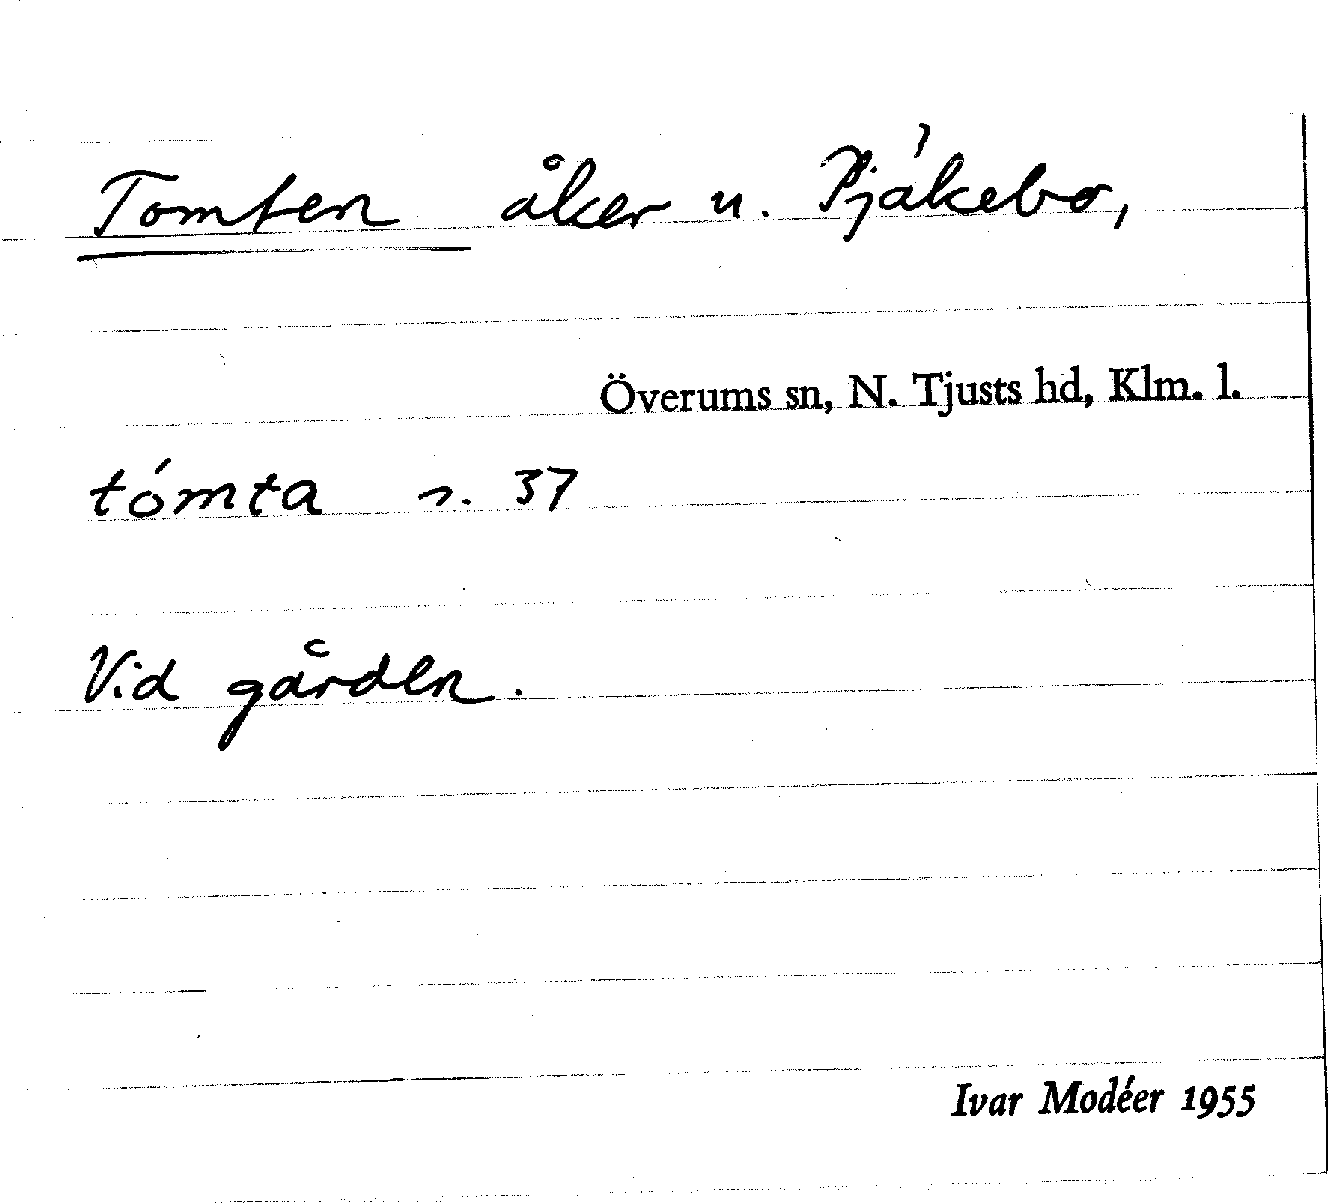 Tomten åker u. Pjákebo,
Överums sn, N. Tjusts hd, Klm. l.
tómta r. 37
Vid gården.
Ivar Modéer 1955